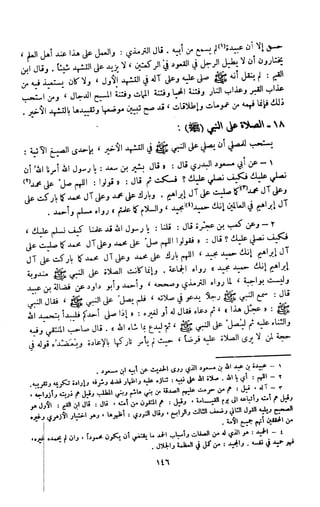 حسن إلا أن عبيدة(١) لم يسمع من أبيه . قال الترمذي : والعمل على هذا عند أهل العلم ،
يختارون أن لا يطيل الرجل في القعود في الركعتين ، لا يزيد على التشهد شيئاً . وقال ابن
القيم : لم ينقل أنه ﷺ صلى عليه وعلى آله في التشهد الأول ، ولا كان يستعيذ فيه من
عذاب القبر وعذاب النار وفتنة المحيا وفتنة الممات وفتنة المسيح الدجال ، ومن استحب
ذلك فإنما فهمه من عمومات وإطلاقات ، قد صح تبيين موضعها وتقييدها بالتشهد الأخير .
١٨ - الصلاة على النبي (ﷺ) :
يستحب للمصلي أن يصلي على النبي ﷺ في التشهد الأخير ، بإحدى الصيغ الآتية :
١ - عن أبي مسعود البدري قال : قال بشير بن سعد : يا رسول الله أمرنا الله أن
نصلي عليك فكيف نصلي عليك ؟ فسكت ثم قال : « قولوا : اللهم صل على محمد(٢)
وعلى آل محمد(٣) كما صليت على آل إبراهيم . وبارك على محمد وعلى آل محمد كما باركت على
آل إبراهيم في العالمين إنك حميد(٤) مجيد ، والسلام كما علمتم » رواه مسلم وأحمد .
٢ - وعن كعب بن عجرة قال : قلنا : يا رسول الله قد علمنا كيف نسلم عليك ،
فكيف نصلي عليك ؟ قال : « فقولوا اللهم صل على محمد وعلى آل محمد كما صليت على
آل إبراهيم إنك حميد مجيد ، اللهم بارك على محمد وعلى آل محمد كما باركت على آل
إبراهيم إنك حميد مجيد » رواه الجماعة . وإنما كانت الصلاة على النبي ﷺ مندوبة
وليست بواجبة ، لما رواه الترمذي وصححه ، وأحمد وأبو داود عن فضالة بن عبيد
قال : سمع النبي ﷺ رجلاً يدعو في صلاته ، فلم يصل على النبي ﷺ ، فقال النبي
ﷺ : « عجل هذا » ، ثم دعاه فقال له أو لغيره : « إذا صلى أحدكم فليبدأ بتحميد الله
والثناء عليه ثم ليصل على النبي ﷺ ، ثم ليدع بما شاء الله » . قال صاحب المنتقى وفيه
حجة لمن لا يرى الصلاة عليه فرضاً ، حيث لم يأمر تاركها بالإعادة ويعضده قوله في
١ - عبيدة بن عبد الله بن مسعود الذي روى الحديث عن أبيه ابن مسعود .
٢ - اللهم : أي يا الله . صلاة الله على نبيه : ثناؤه عليه وإظهار فضله وشرفه وإرادة تكريمه وتقريبه .
٣ - آله ، قيل : هم من حرمت عليهم الصدقة من بني هاشم وبني المطلب وقيل هم ذريته وأزواجه ،
وقيل هم أمته وأتباعه إلى يوم القيامة ، وقيل : هم المتقون من أمته . قال : قال ابن القيم : الأول هو
الصحيح ويليه القول الثاني وضعف الثالث والرابع ، وقال النووي : أظهرها ، وهو اختيار الأزهري وغيره
من المحققين أنهم جميع الأمة .
٤ - الحميد : هو الذي له من الصفات وأسباب الحمد ما يقتضي أن يكون محموداً ، وإن لم يحمده غيره،
فهو حميد في نفسه . والمجيد : من كمل في العظمة والجلال .
١٤٦